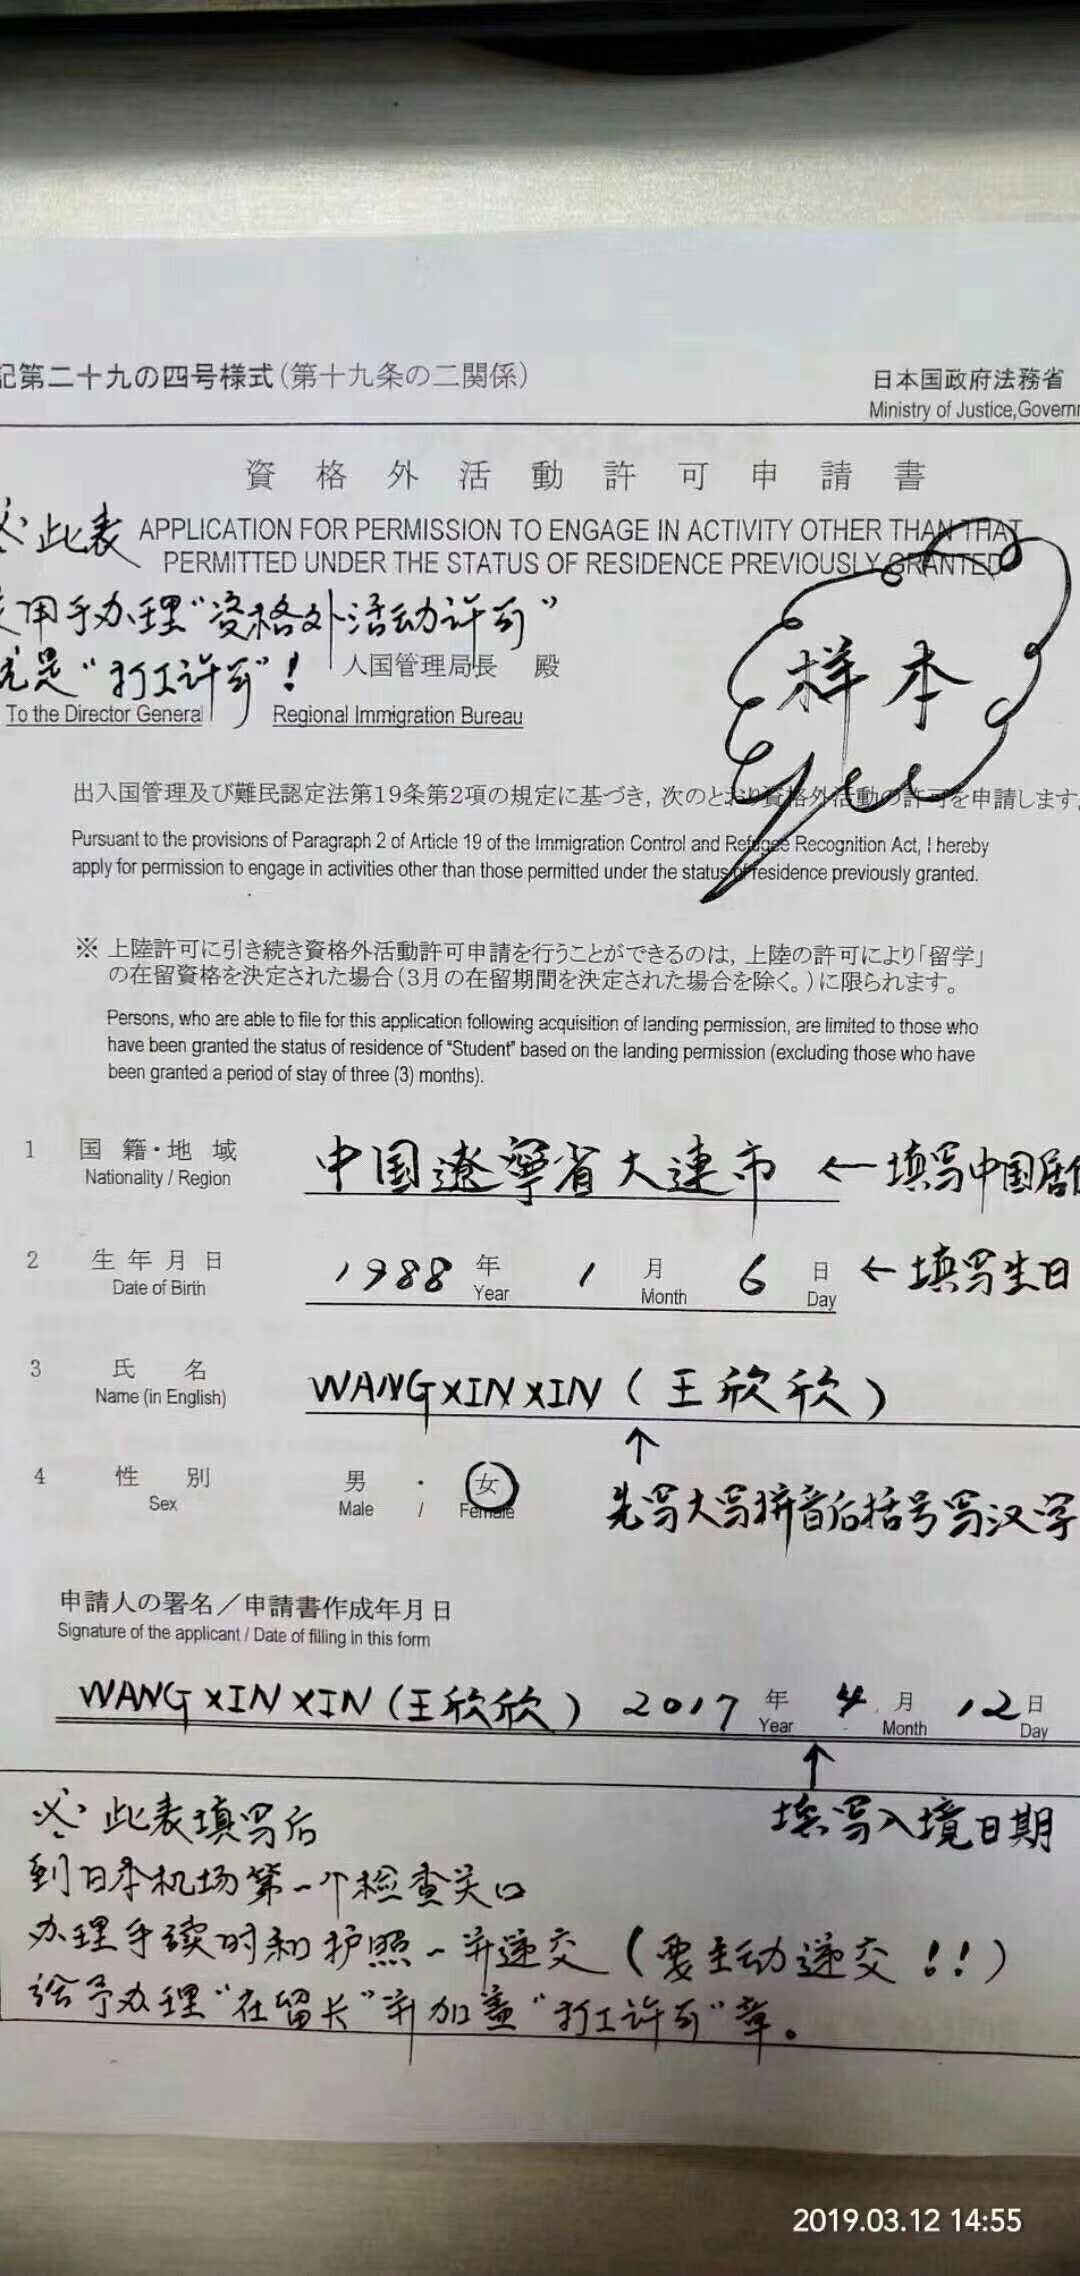 記第二十九の四号様式(第十九条の二関係)
日本国政府法務省
Ministry of Justice,Governm
資格外活動許可申請書
※此表
APPLICATION FOR PERMISSION TO ENGAGE IN ACTIVITY OTHER THAN THAT
PERMITTED UNDER THE STATUS OF RESIDENCE PREVIOUSLY GRANTED
用于办理“资格外活动许可”
是“打工许可”!
入国管理局長 殿
样本
To the Director General
Regional Immigration Bureau
出入国管理及び難民認定法第19条第2項の規定に基づき, 次のとおり資格外活動の許可を申請します。
Pursuant to the provisions of Paragraph 2 of Article 19 of the Immigration Control and Refugee Recognition Act, I hereby
apply for permission to engage in activities other than those permitted under the status of residence previously granted.
※ 上陸許可に引き続き資格外活動許可申請を行うことができるのは, 上陸の許可により「留学」
の在留資格を決定された場合(3月の在留期間を決定された場合を除く。)に限られます。
Persons, who are able to file for this application following acquisition of landing permission, are limited to those who
have been granted the status of residence of “Student” based on the landing permission (excluding those who have
been granted a period of stay of three (3) months).
1 国籍・地域 中国遼寧省大連市 ←填写中国居住
Nationality / Region
2 生年月日 1988 年 1 月 6 日 ←填写生日
Date of Birth Year Month Day
3 氏名 WANG XIN XIN (王欣欣)
Name (in English)
↑
4 性別 男 ・ 女
Sex Male / Female
先写大写拼音后括号写汉字
申請人の署名/申請書作成年月日
Signature of the applicant / Date of filling in this form
WANG XIN XIN (王欣欣) 2017 年 4 月 12 日
Year Month Day
↑
填写入境日期
※此表填写后
到日本机场第一个检查关口
办理手续时和护照一并递交(要主动递交!!)
给予办理“在留卡”并加盖“打工许可”章。
2019.03.12 14:55